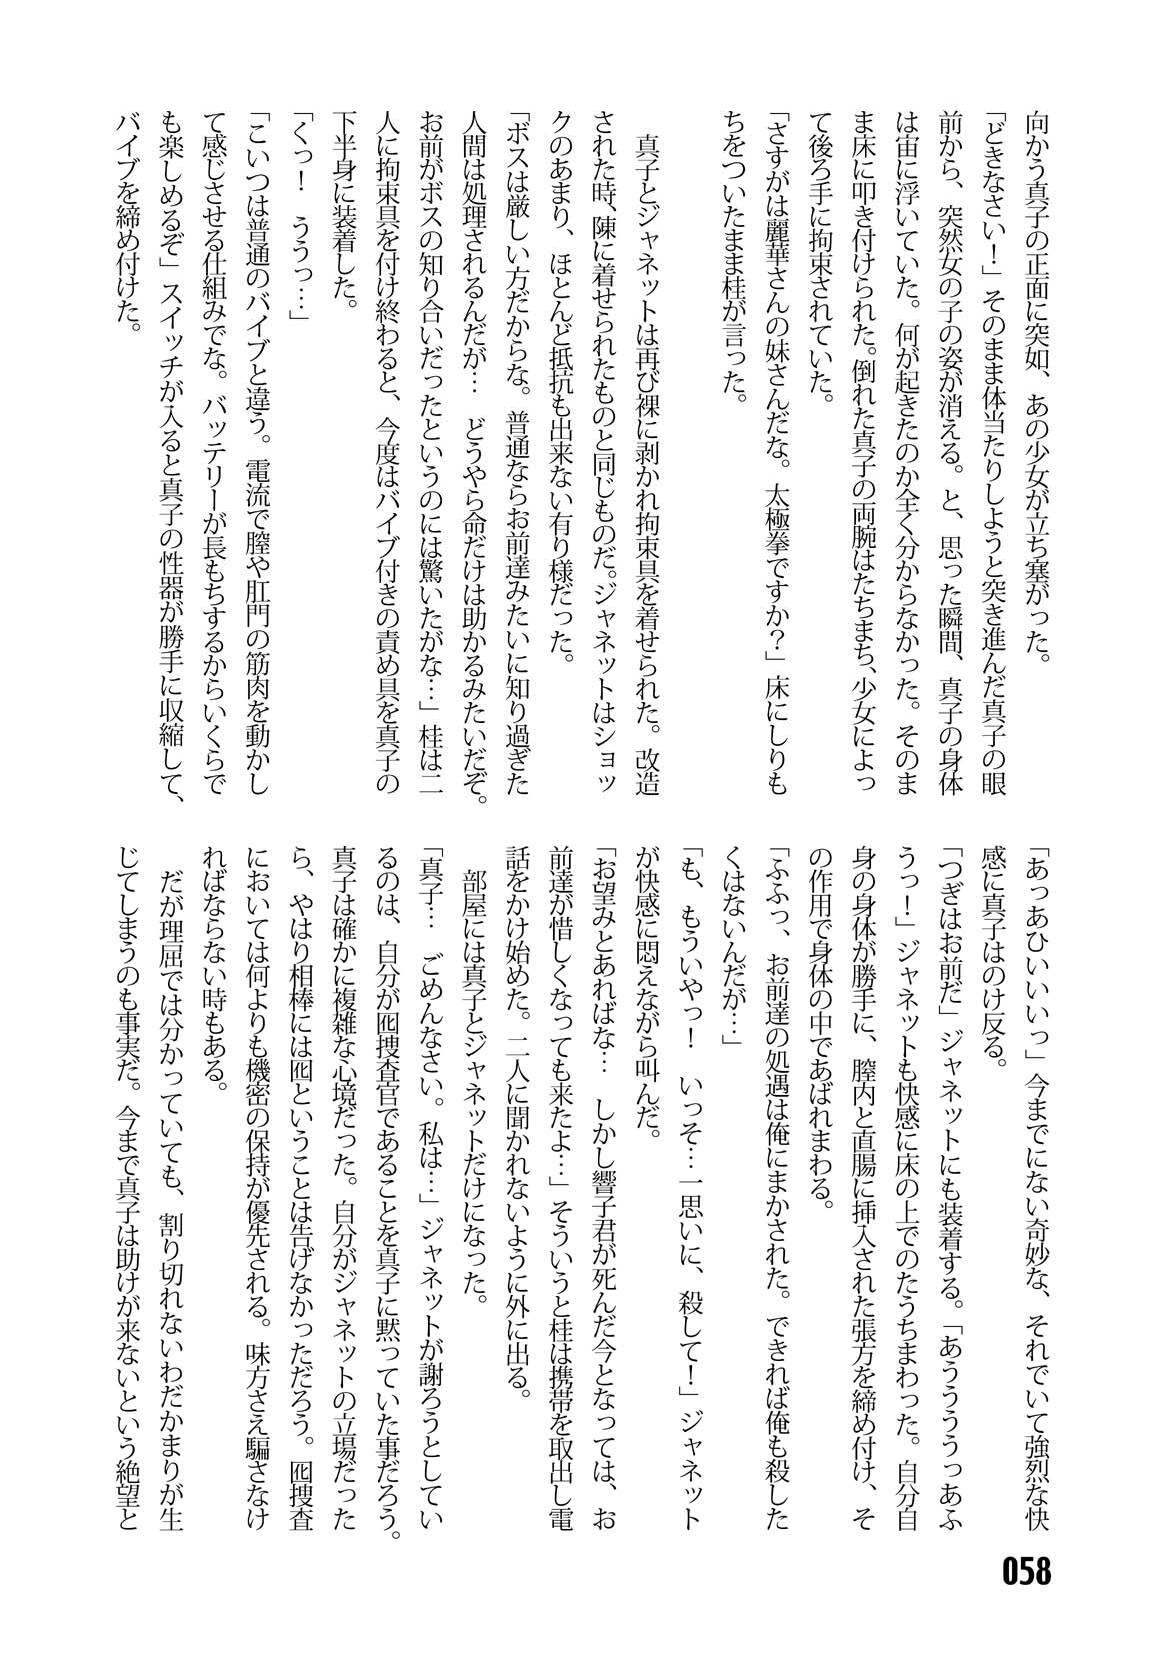 向かう真子の正面に突如、あの少女が立ち塞がった。
「どきなさい！」そのまま体当たりしようと突き進んだ真子の眼
前から、突然女の子の姿が消える。と、思った瞬間、真子の身体
は宙に浮いていた。何が起きたのか全く分からなかった。そのま
ま床に叩き付けられた。倒れた真子の両腕はたちまち、少女によっ
て後ろ手に拘束されていた。
「さすがは麗華さんの妹さんだな。太極拳ですか？」床にしりも
ちをついたまま桂が言った。
真子とジャネットは再び裸に剥かれ拘束具を着せられた。改造
された時、陳に着せられたものと同じものだ。ジャネットはショッ
クのあまり、ほとんど抵抗も出来ない有り様だった。
「ボスは厳しい方だからな。普通ならお前達みたいに知り過ぎた
人間は処理されるんだが…　どうやら命だけは助かるみたいだぞ。
お前がボスの知り合いだったというのには驚いたがな…」桂は二
人に拘束具を付け終わると、今度はバイブ付きの責め具を真子の
下半身に装着した。
「くっ！　ううっ…」
「こいつは普通のバイブと違う。電流で膣や肛門の筋肉を動かし
て感じさせる仕組みでな。バッテリーが長もちするからいくらで
も楽しめるぞ」スイッチが入ると真子の性器が勝手に収縮して、
バイブを締め付けた。
「あっあひいいいっ」今までにない奇妙な、それでいて強烈な快
感に真子はのけ反る。
「つぎはお前だ」ジャネットにも装着する。「あうううっあふ
うっ！」ジャネットも快感に床の上でのたうちまわった。自分自
身の身体が勝手に、膣内と直腸に挿入された張方を締め付け、そ
の作用で身体の中であばれまわる。
「ふふっ、お前達の処遇は俺にまかされた。できれば俺も殺した
くはないんだが…」
「も、もういやっ！　いっそ…一思いに、殺して！」ジャネット
が快感に悶えながら叫んだ。
「お望みとあればな…　しかし響子君が死んだ今となっては、お
前達が惜しくなっても来たよ…」そういうと桂は携帯を取出し電
話をかけ始めた。二人に聞かれないように外に出る。
部屋には真子とジャネットだけになった。
「真子…　ごめんなさい。私は…」ジャネットが謝ろうとしてい
るのは、自分が囮捜査官であることを真子に黙っていた事だろう。
真子は確かに複雑な心境だった。自分がジャネットの立場だった
ら、やはり相棒には囮ということは告げなかっただろう。囮捜査
においては何よりも機密の保持が優先される。味方さえ騙さなけ
ればならない時もある。
だが理屈では分かっていても、割り切れないわだかまりが生
じてしまうのも事実だ。今まで真子は助けが来ないという絶望と
058